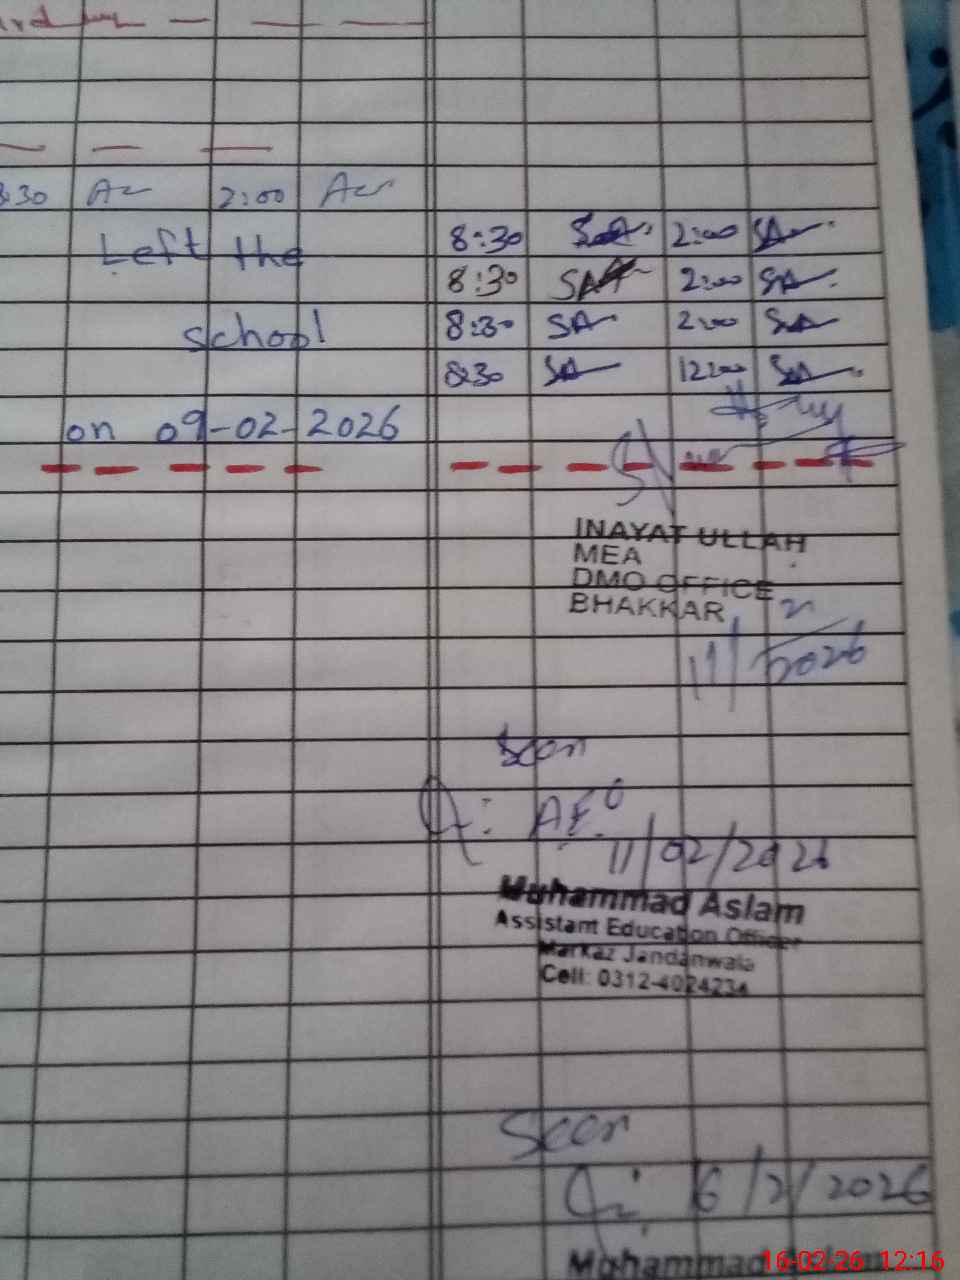 8:30 2:00
8:30 SA 2:00 SA
Left the
8:30 SA 2:00 SA
school
8:30 SA 2:00 SA
8:30 SA 12:00 SA
on 09-02-2026
INAYAT ULLAH
MEA
DMO OFFICE
BHAKKAR
11/2/2026
Seen
AEO
11/02/2026
Muhammad Aslam
Assistant Education Officer
Markaz Jandanwala
Cell: 0312-4024234
Seen
16/2/2026
Muhammad Aslam
16-02-26 12:16